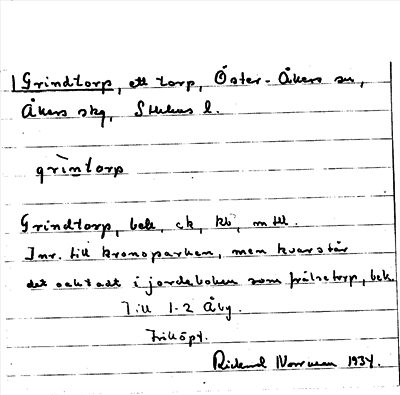 Grindtorp, ett torp, Öster-Åkers sn,
Åkers skg, Sthlms l.
grìntorp
Grindtorp, beb., ck, kb, mtl.
Inr. till kronoparken, men kvarstår
det oaktadt i jordeboken som frälsetorp, beb.
Till 1-2 Åby.
Friköpt.
Rickard Norrman 1934.